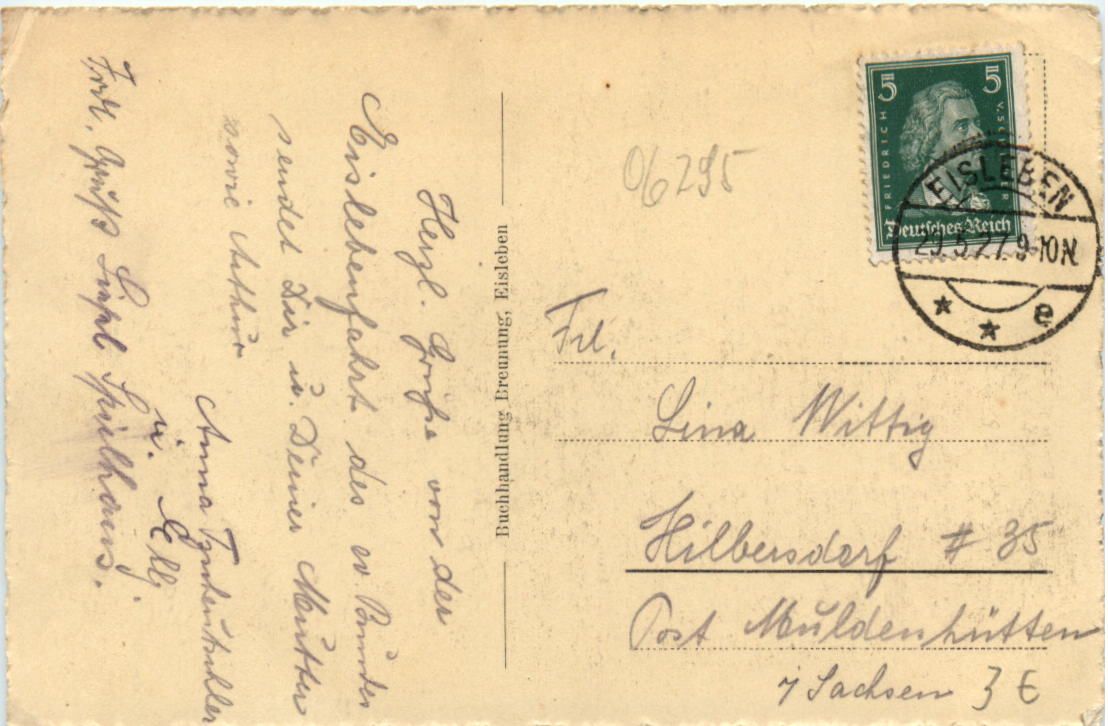 Herzl. Grüße von der
Eislebenfahrt des ev Bundes
sendet Dir u. Deiner Mutter
sowie Arthur
Anna
u. Elly
Frdl. Gruß
Buchhandlung Breunung, Eisleben
06295
5 5
FRIEDRICH V. SCHILLER
Deutsches Reich
EISLEBEN
29.5.27.9-10N.
* * e
Frl.
Lina Wittig
Hilbersdorf # 35
Post Muldenhütten
i/Sachsen 3 E